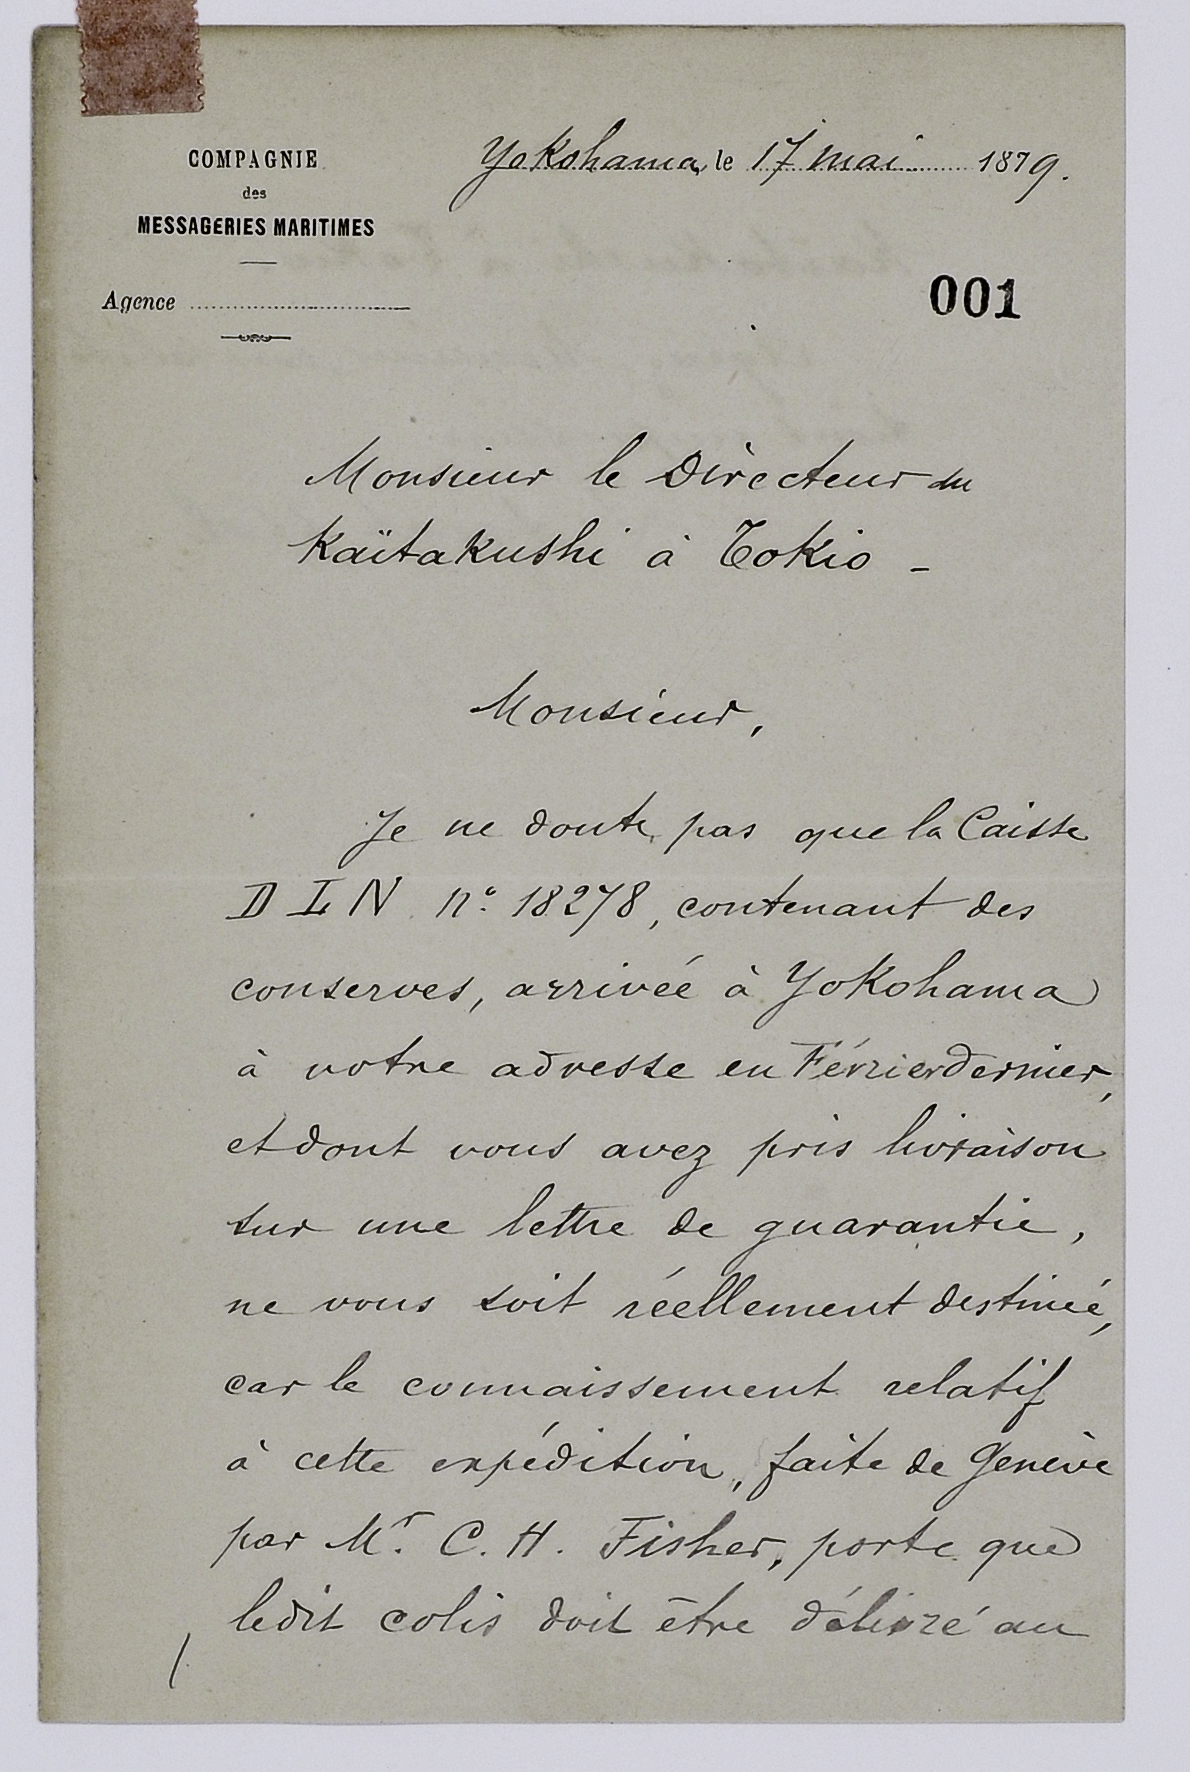 COMPAGNIE
des
MESSAGERIES MARITIMES
Agence
Yokohama, le 17 mai 1879.
001
Monsieur le Directeur du
Kaïtakushi à Tokio -
Monsieur,
Je ne doute pas que la Caisse
D L N n° 18278, contenant des
conserves, arrivée à Yokohama
à votre adresse en Février dernier,
et dont vous avez pris livraison
sur une lettre de guarantie,
ne vous soit réellement destinée,
car le connaissement relatif
à cette expédition, faite de Genève
par Mr. C. H. Fisher, porte que
ledit colis doit être délivré au
/